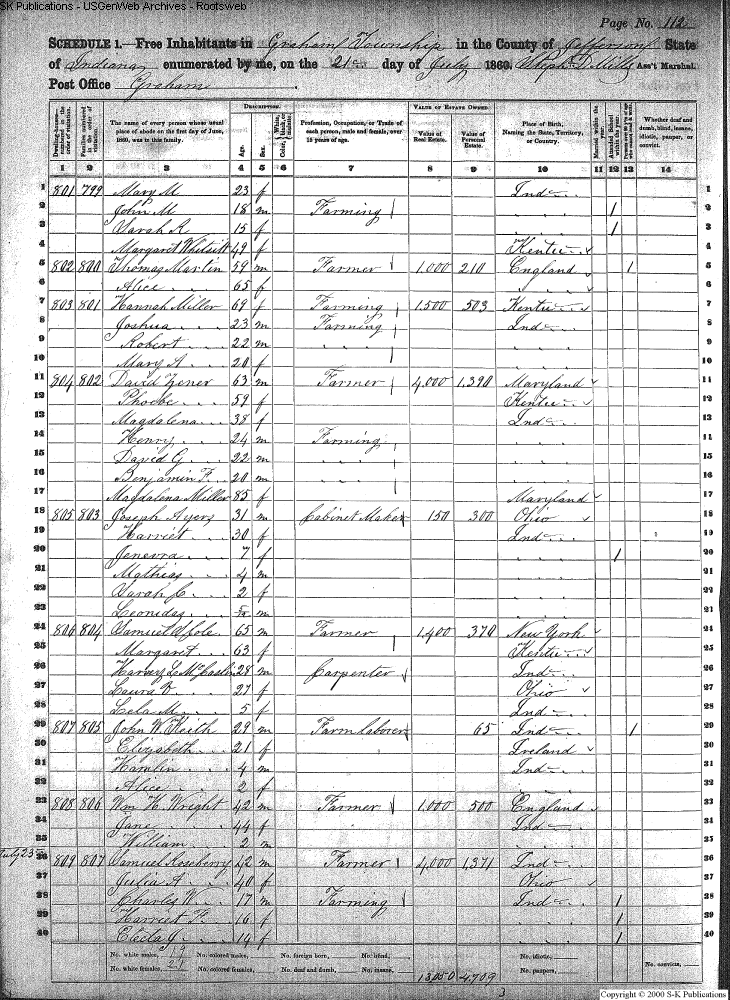 SK Publications - USGenWeb Archives - Rootsweb
Page No. 112
SCHEDULE 1.—Free Inhabitants in Graham Township in the County of Jefferson State
of Indiana enumerated by me, on the 21st day of July 1860. D Mills Ass't Marshal.
Post Office Graham
DESCRIPTION. VALUE OF ESTATE OWNED.
Dwelling-houses—numbered in the order of visitation.
Families numbered in the order of visitation.
The name of every person whose usual place of abode on the first day of June, 1860, was in this family.
Age.
Sex.
Color, White, black, or mulatto.
Profession, Occupation, or Trade of each person, male and female, over 15 years of age.
Value of Real Estate.
Value of Personal Estate.
Place of Birth, Naming the State, Territory, or Country.
Married within the year.
Attended School within the year.
Whether deaf and dumb, blind, insane, idiotic, pauper, or convict.
1 2 3 4 5 6 7 8 9 10 11 12 13 14
1 801 799 Mary M 23 f Ind 1
2 John M 18 m Farming / 2
3 Sarah R 15 f / 3
4 Margaret Whitsitt 49 f Kentu 4
5 802 800 Thomas Martin 59 m Farmer 1,000 210 England / 5
6 Alice 65 f 6
7 803 801 Hannah Miller 69 f Farming 1,500 503 Kentu 7
8 Joshua 23 m Farming Ind 8
9 Robert 22 m 9
10 Mary A 20 f 10
11 804 802 David Zener 63 m Farmer 4,000 1,390 Maryland 11
12 Phoebe 59 f Kentu 12
13 Magdalena 38 f Ind 13
14 Henry 24 m Farming
15 David G 22 m 15
16 Benjamin F. 20 m 16
17 Magdalena Miller 85 f Maryland 17
18 805 803 Joseph Ayers 31 m Cabinet Maker 150 300 Ohio 18
19 Harriet 30 f Ind 19
20 Jenevra 7 f / 20
21 Mathias 4 m 21
22 Sarah C 2 f 22
23 Leonidas m 23
24 806 804 Samuel 65 m Farmer 1,400 370 New York 24
25 Margaret 63 f Kentu 25
26 Harvey L McCaslin 28 m Carpenter Ind 26
27 Laura V. 27 f Ohio 27
28 Lela M 5 f Ind 28
29 807 805 John W. Keith 29 m Farm laborer 65 Ind / 29
30 Elizabeth 21 f Ireland 30
31 Hamlin 4 m Ind 31
Alice 2 f
33 808 806 Wm H. Wright 42 m Farmer 1,000 500 England 33
34 Jane 44 f Ind 34
William 2 m 35
July 23 36 809 807 Samuel Roseberry 42 m Farmer 4,000 1,371 Ind 36
37 Julia A 40 f Ohio 37
38 Charles W. 17 m Farming Ind / 38
39 Harriet F. 16 f / 39
40 Electa J 14 f / 40
No. white males, No. colored males, No. foreign born, No. blind, No. idiotic, No. convicts,
No. white females, No. colored females, No. deaf and dumb, No. insane, 13050 4709 No. paupers,
3
Copyright © 2000 S-K Publications